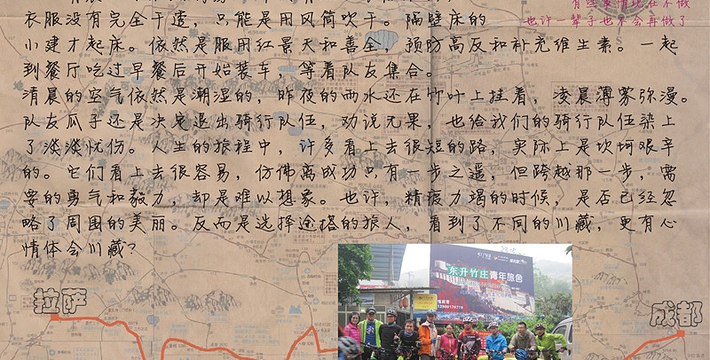 有些事情现在不做
也许一辈子也不会再做了
衣服没有完全干透，只能是用风筒吹干。隔壁床的
小建才起床。依然是服用红景天和善全，预防高反和补充维生素。一起
到餐厅吃过早餐后开始装车，等着队友集合。
清晨的空气依然是潮湿的，昨夜的雨水还在竹叶上挂着，凌晨薄雾弥漫。
队友瓜子还是决定退出骑行队伍，劝说无果，也给我们的骑行队伍染上
了淡淡忧伤。人生的旅程中，许多看上去很短的路，实际上是坎坷艰辛
的。它们看上去很容易，仿佛离成功只有一步之遥，但跨越那一步，需
要的勇气和毅力，却是难以想象。也许，精疲力竭的时候，是否已经忽
略了周围的美丽。反而是选择途搭的旅人，看到了不同的川藏，更有心
情体会川藏？
东升竹庄青年旅舍
拉萨
成都